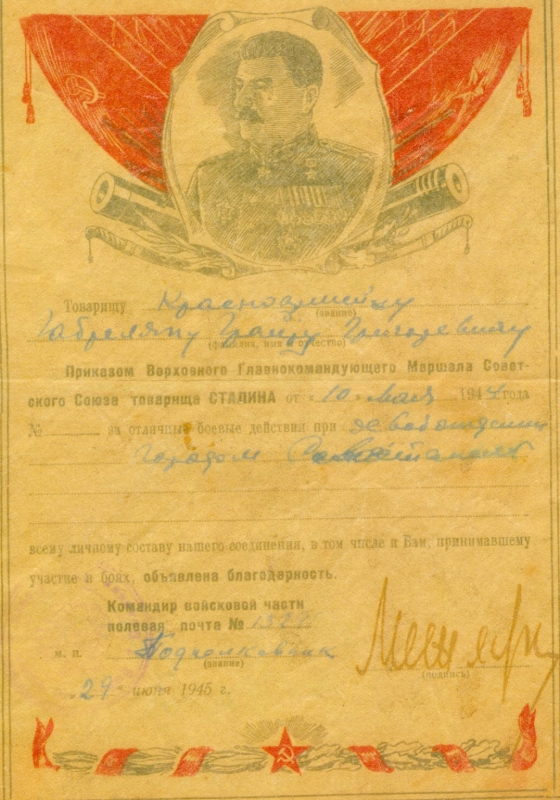 Товарищу Красноармейцу
(звание)
Габреляну Грайру Григорьевичу
(фамилия, имя и отчество)
Приказом Верховного Главнокомандующего Маршала Совет-
ского Союза товарища СТАЛИНА от «10» мая 1944 года
№ за отличные боевые действия при
городом
всему личному составу нашего соединения, в том числе и Вам, принимавшему
участие в боях, объявлена благодарность.
Командир войсковой части
полевая почта №
м. п. Подполковник
(звание)
(подпись)
29 июня 1945 г.